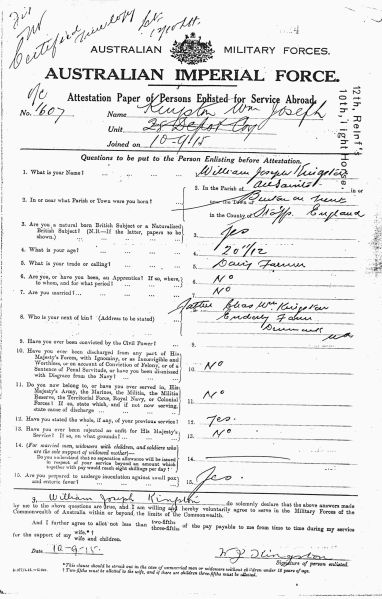 Certified
AUSTRALIAN MILITARY FORCES.
AUSTRALIAN IMPERIAL FORCE.
Attestation Paper of Persons Enlisted for Service Abroad.
No. 1607
Name Kingston Wm Joseph
Unit 28 Depot Coy
Joined on 10-9-15
12th Reinf's
10th Light Horse.
Questions to be put to the Person Enlisting before Attestation.
1. What is your Name? 1. William Joseph Kingston
2. In or near what Parish or Town were you born? 2. In the Parish of All Saints in or
near the Town of Burton on Trent
in the County of Staffs England
3. Are you a natural born British Subject or a Naturalised
British Subject? (N.B.—If the latter, papers to be
shown.) 3. Yes
4. What is your age? 4. 20 7/12
5. What is your trade or calling? 5. Dairy Farmer
6. Are you, or have you been, an Apprentice? If so, where,
to whom, and for what period? 6. No
7. Are you married? 7. No
8. Who is your next of kin? (Address to be stated) 8. Father Chas Wm Kingston
Enderly Farm
Denmark
WA
9. Have you ever been convicted by the Civil Power? 9.
10. Have you ever been discharged from any part of His
Majesty's Forces, with Ignominy, or as Incorrigible and
Worthless, or on account of Conviction of Felony, or of a
Sentence of Penal Servitude, or have you been dismissed
with Disgrace from the Navy? 10. No
11. Do you now belong to, or have you ever served in, His
Majesty's Army, the Marines, the Militia, the Militia
Reserve, the Territorial Force, Royal Navy, or Colonial
Forces? If so, state which, and if not now serving,
state cause of discharge 11. No
12. Have you stated the whole, if any, of your previous service? 12. Yes.
13. Have you ever been rejected as unfit for His Majesty's
Service? If so, on what grounds? 13. No
14. (For married men, widowers with children, and soldiers who
are the sole support of widowed mother—
Do you understand that no separation allowance will be issued
in respect of your service beyond an amount which
together with pay would reach eight shillings per day? 14.
15. Are you prepared to undergo inoculation against small pox
and enteric fever? 15. Yes.
I, William Joseph Kingston do solemnly declare that the above answers made
by me to the above questions are true, and I am willing and hereby voluntarily agree to serve in the Military Forces of the
Commonwealth of Australia within or beyond the limits of the Commonwealth.
And I further agree to allot not less than two-fifths
three-fifths of the pay payable to me from time to time during my service
for the support of my wife.*
wife and children.
Date 10-9-15. W J Kingston
Signature of person enlisted.
*This clause should be struck out in the case of unmarried men or widowers without children under 18 years of age.
† Two-fifths must be allotted to the wife, and if there are children three-fifths must be allotted.